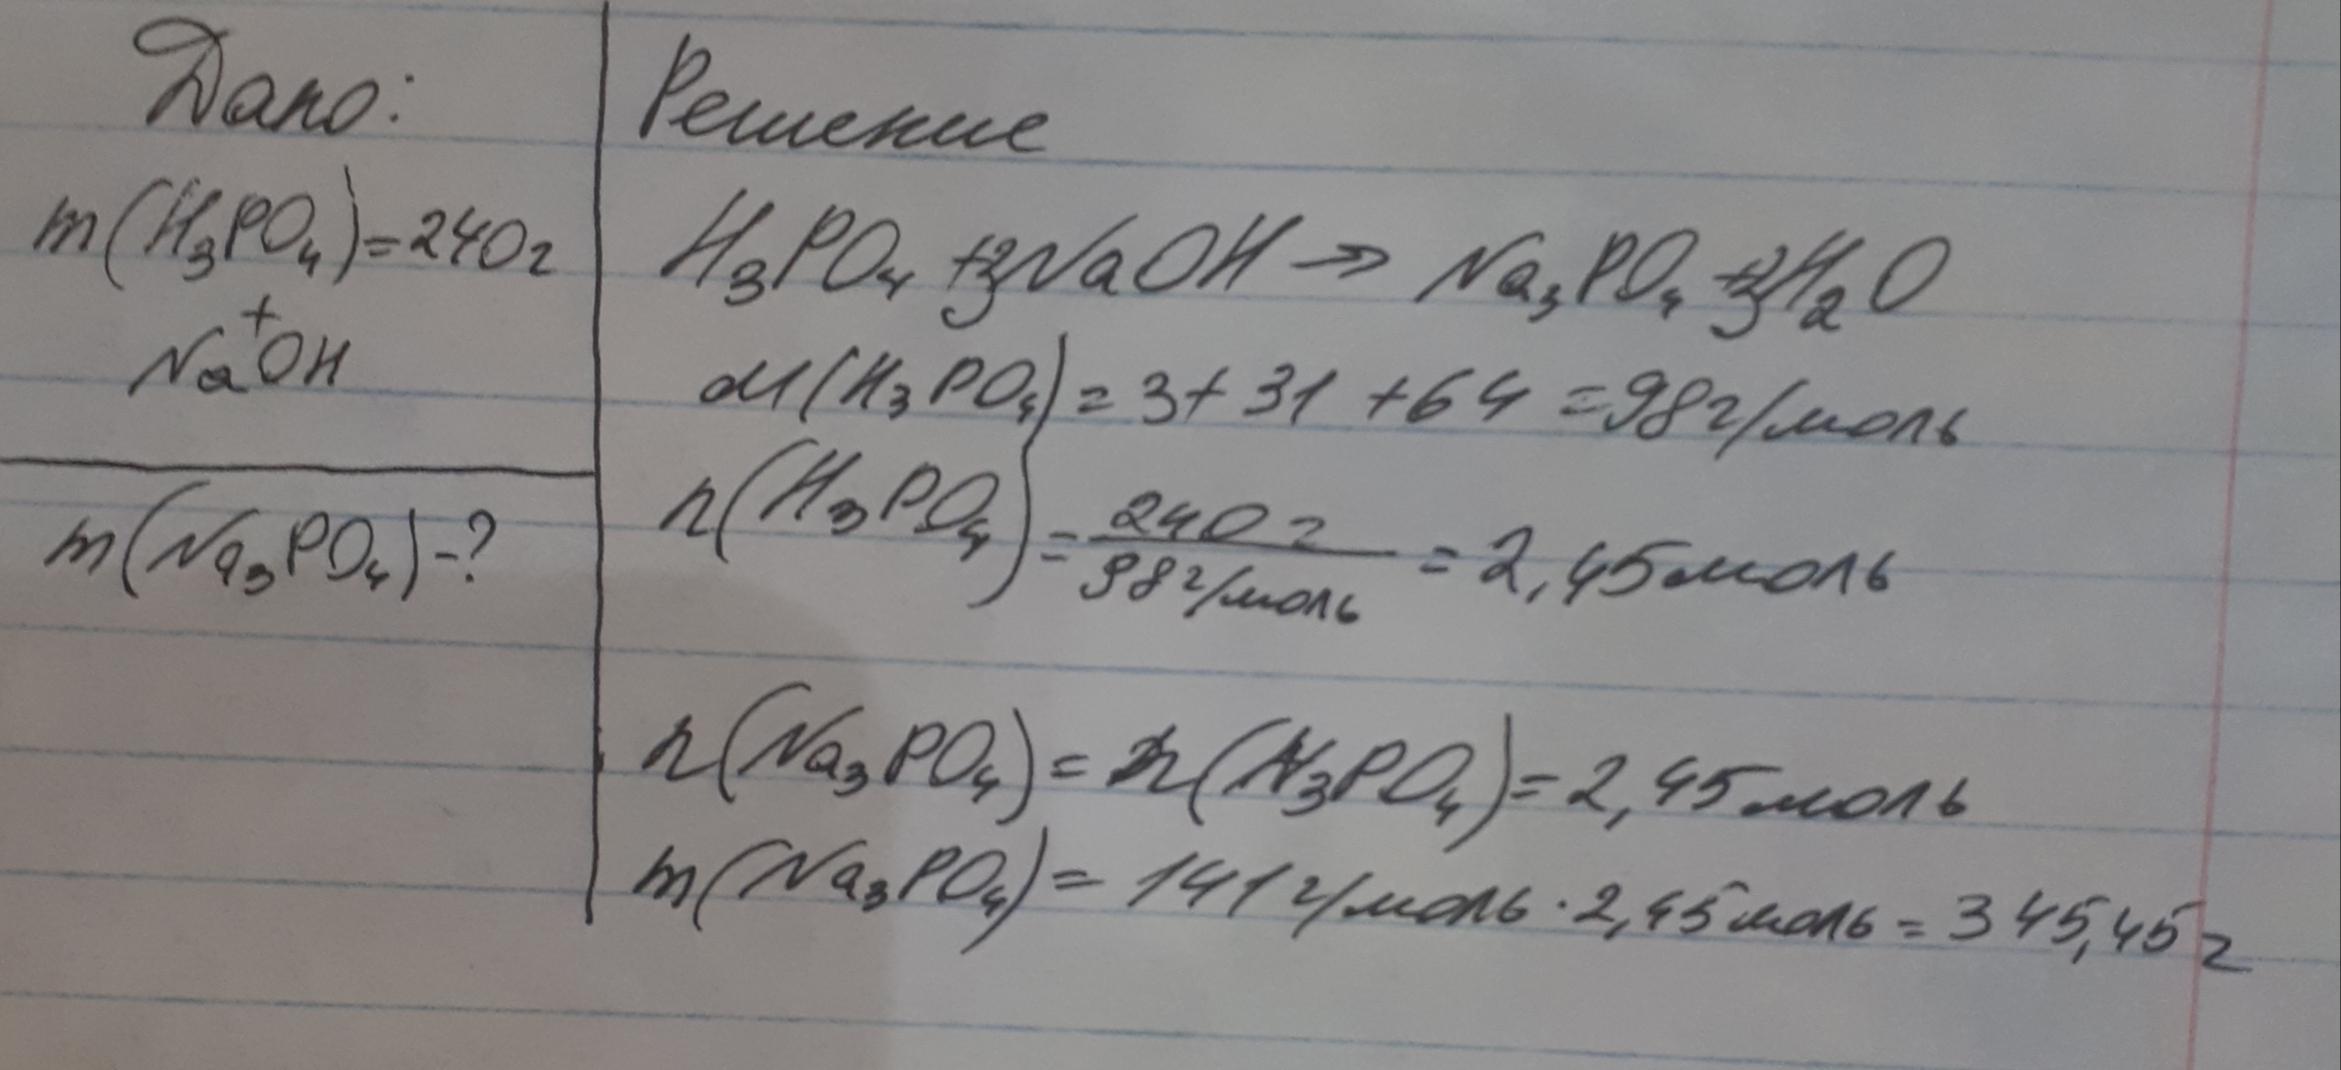 Дано:
m(H₃PO₄)=240г
+
NaOH
m(Na₃PO₄)-?
Решение
H₃PO₄+3NaOH→Na₃PO₄+3H₂O
M(H₃PO₄)=3+31+64=98г/моль
n(H₃PO₄)=240г/98г/моль=2,45моль
n(Na₃PO₄)=n(H₃PO₄)=2,45моль
m(Na₃PO₄)=141г/моль·2,45моль=345,45г